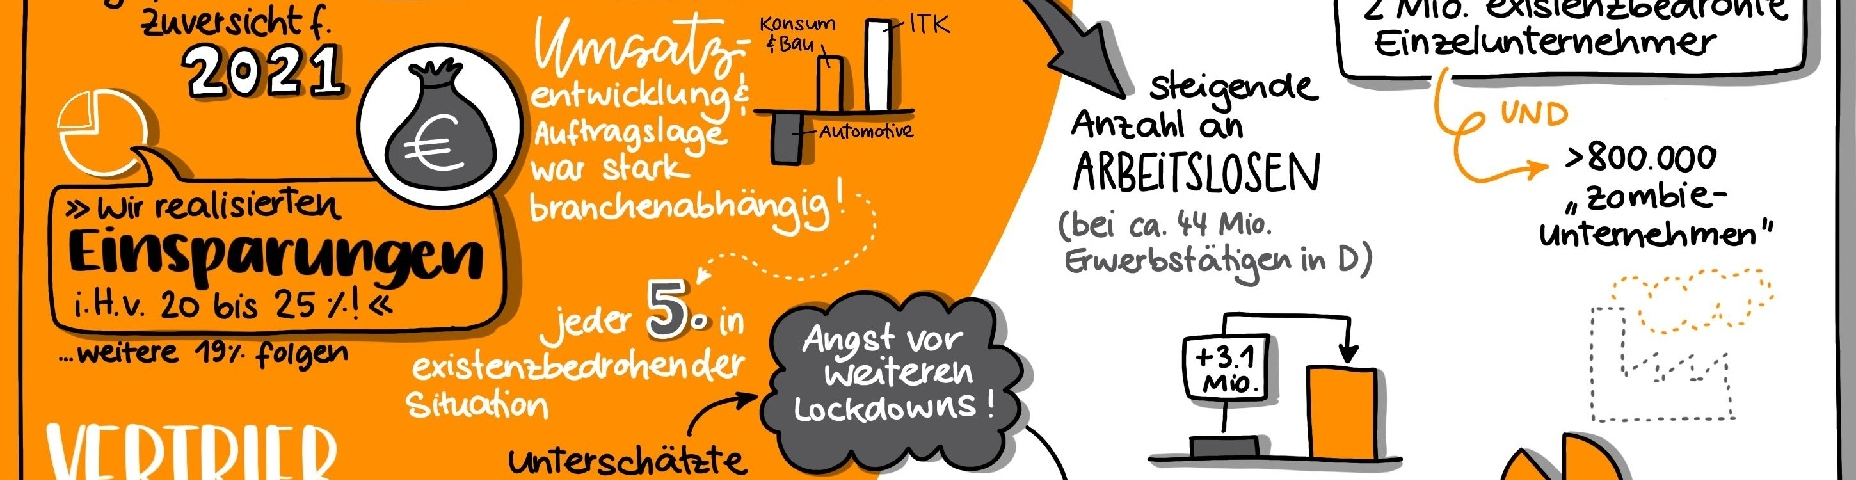 Zuversicht f.
2021
» Wir realisierten
Einsparungen
i.H.v. 20 bis 25 %! «
...weitere 19% folgen
€
Umsatz-
entwicklung &
Auftragslage
war stark
branchenabhängig!
Konsum
& Bau
ITK
Automotive
jeder 5. in
existenzbedrohender
Situation
Angst vor
weiteren
Lockdowns!
unterschätzte
VERTRIEB
steigende
Anzahl an
ARBEITSLOSEN
(bei ca. 44 Mio.
Erwerbstätigen in D)
+3.1
Mio.
2 Mio. existenzbedrohte
Einzelunternehmer
UND
>800.000
„Zombie-
unternehmen"